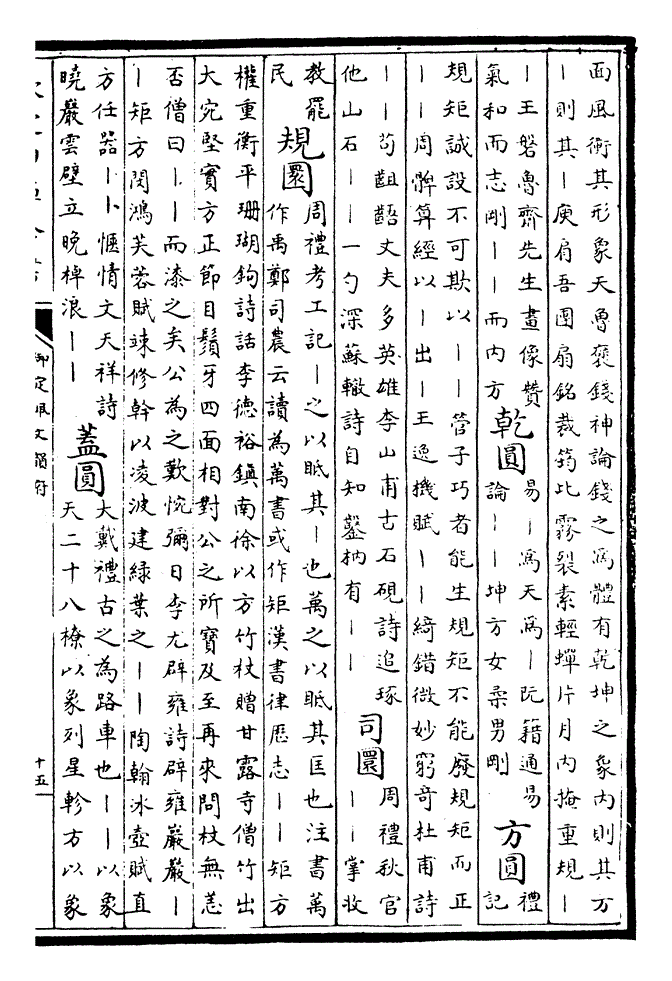 面風術其形象天魯褒錢神論錢之為體有乾坤之象内則其方
｜則其｜庾肩吾團扇銘裁筠比霧裂素輕蟬片月内掩重規｜
｜王磐魯齊先生畫像贊
氣和而志剛｜｜而内方
乾圓
易｜為天為｜阮籍通易
論｜｜坤方女柔男剛
方圓
禮
記
規矩誠設不可欺以｜｜管子巧者能生規矩不能廢規矩而正
｜｜周髀算經以｜出｜王逸機賦｜｜綺錯微妙窮竒杜甫詩
｜｜苟齟齬丈夫多英雄李山甫古石硯詩追琢
他山石｜｜一勺深蘇轍詩自知鑿枘有｜｜
司圜
周禮秋官
｜｜掌收
教罷
民
規圜
周禮考工記｜之以眡其｜也萬之以眡其匡也注書萬
作禹鄭司農云讀為萬書或作矩漢書律厯志｜｜矩方
權重衡平珊瑚鉤詩話李德裕鎮南徐以方竹杖贈甘露寺僧竹出
大宛堅實方正節目鬚牙四面相對公之所寶及至再來問杖無恙
否僧曰｜｜而漆之矣公為之歎惋彌日李尤辟雍詩辟雍巖巖｜
｜矩方閔鴻芙蓉賦竦修幹以凌波建緑葉之｜｜陶翰冰壺賦直
方任器｜｜卜愜情文天祥詩
曉巖雲壁立晚棹浪｜｜
葢圓
大戴禮古之為路車也｜｜以象
天二十八橑以象列星軫方以象
御定佩文韻府
十五